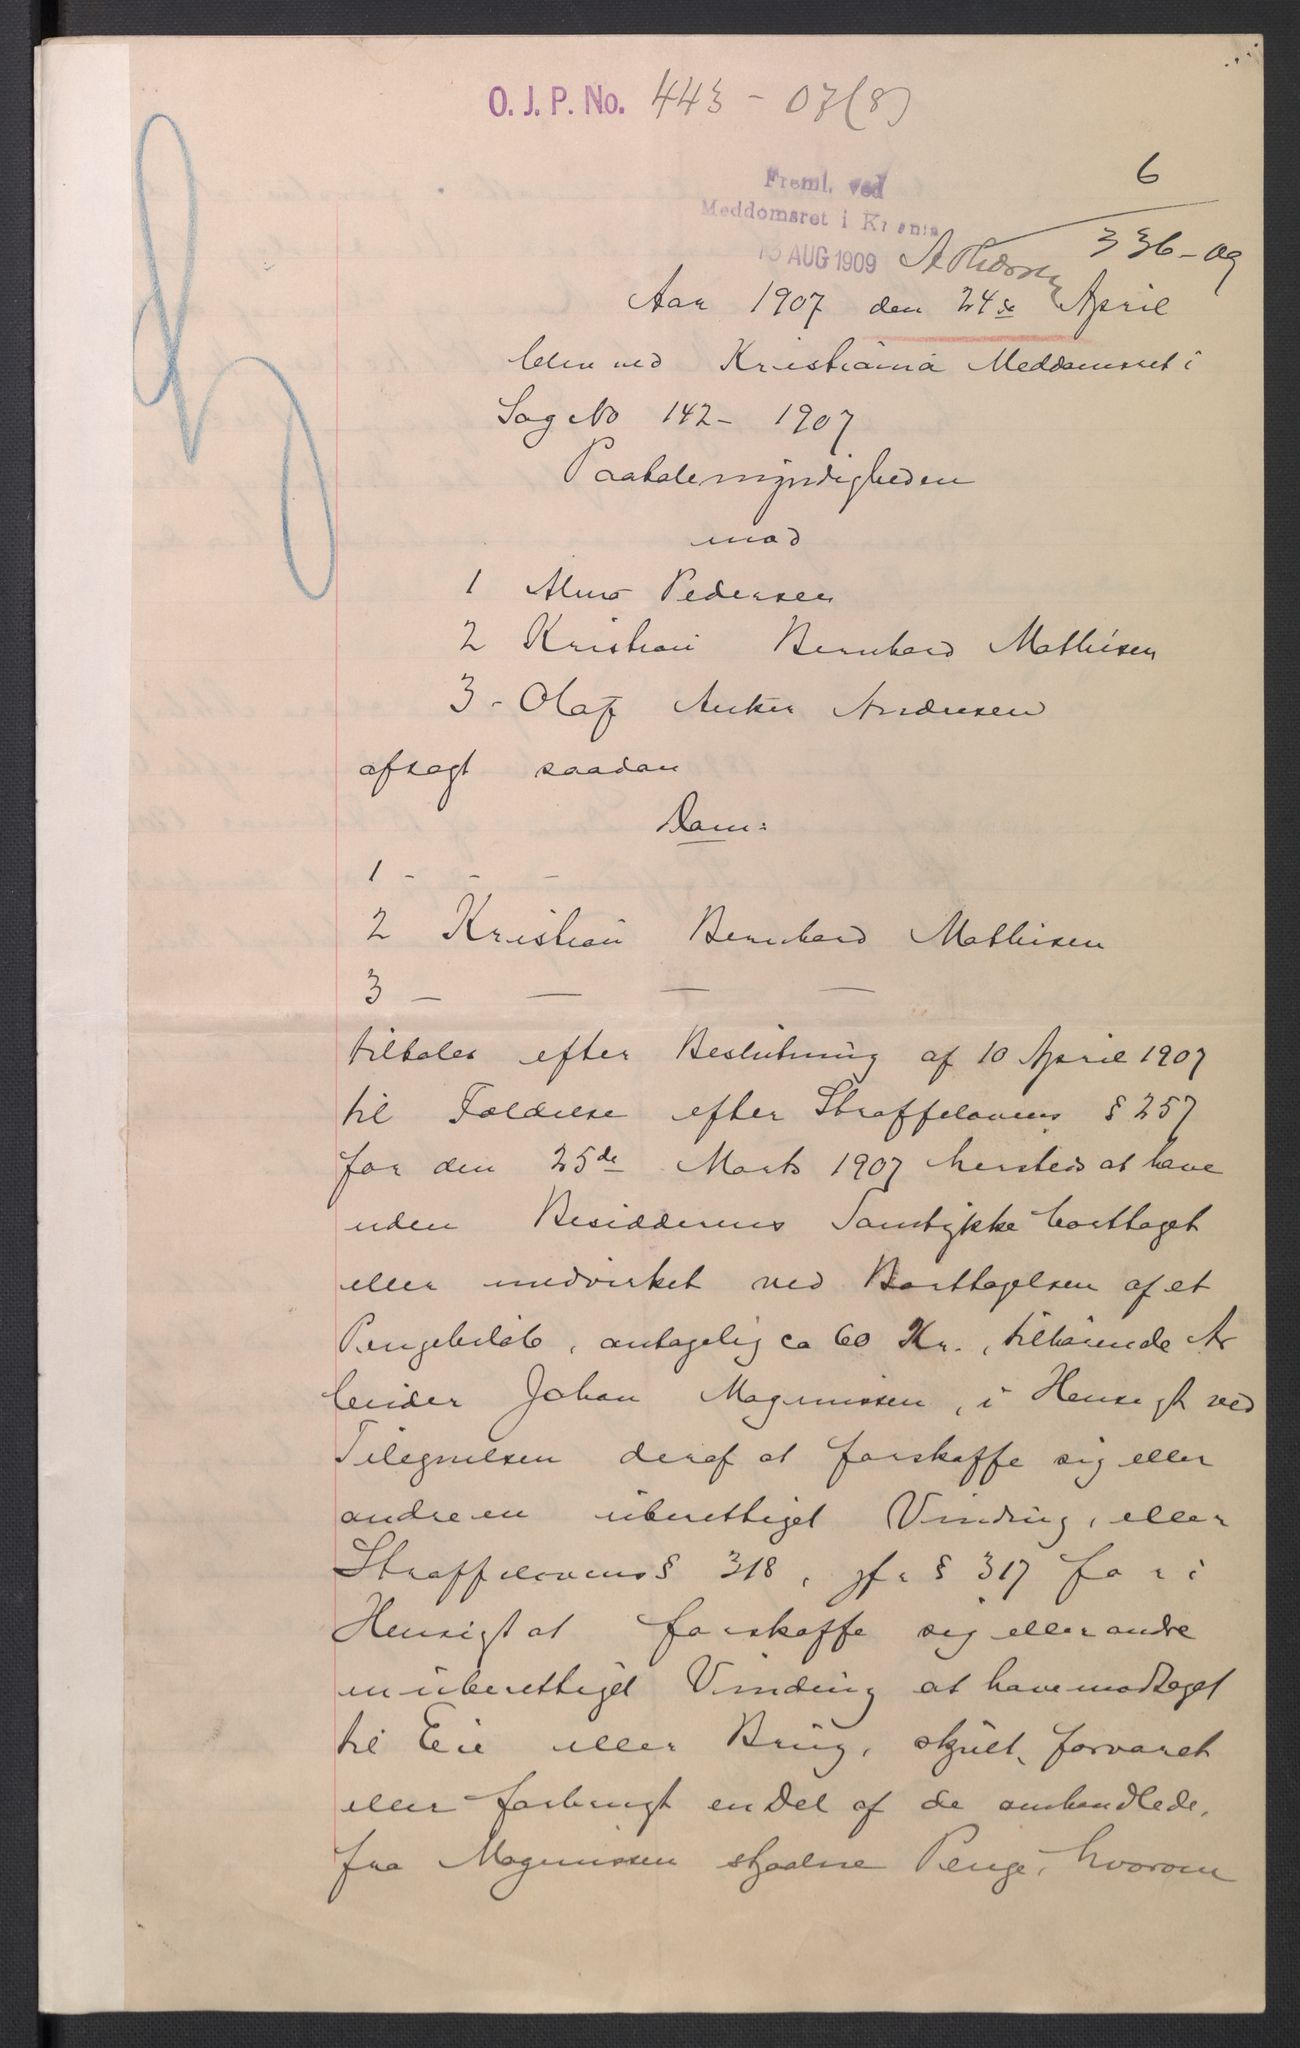 O. J. P. No. 443 - 07 (8)
6
Freml. ved
Meddomsret i Kr ania
13 AUG 1909
336-09
Aar 1907 den 24de April
blev ved Kristiania Meddomsret i
Sag No 142- 1907
Paatalemyndigheden
mod
1 Alma Pedersen
2 Kristian Bernhard Mathisen
3- Olaf Anker Andresen
afsagt saadan
Dom:
1 - - -
2 Kristian Bernhard Mathisen
3 - - - -
tiltales efter Beslutning af 10 April 1907
til Fældelse efter Straffelovens § 257
for den 25de Marts 1907 hersteds at have
uden Besidderens Samtykke borttaget
eller medvirket ved Borttagelsen af et
Pengebeløb, antagelig ca 60 Kr., tilhørende Ar
beider Johan Magnussen, i Hensigt ved
Tilegnelsen deraf at forskaffe sig eller
andre en uberettiget Vinding, eller
Straffelovens § 318, jfr § 317 for i
Hensigt at forskaffe sig eller andre
en uberettiget Vinding at have modtaget
til Eie eller Brug, skjult, forvaret
eller forbrugt en Del af de omhandlede,
fra Magnussen stjaalne Penge, hvorom